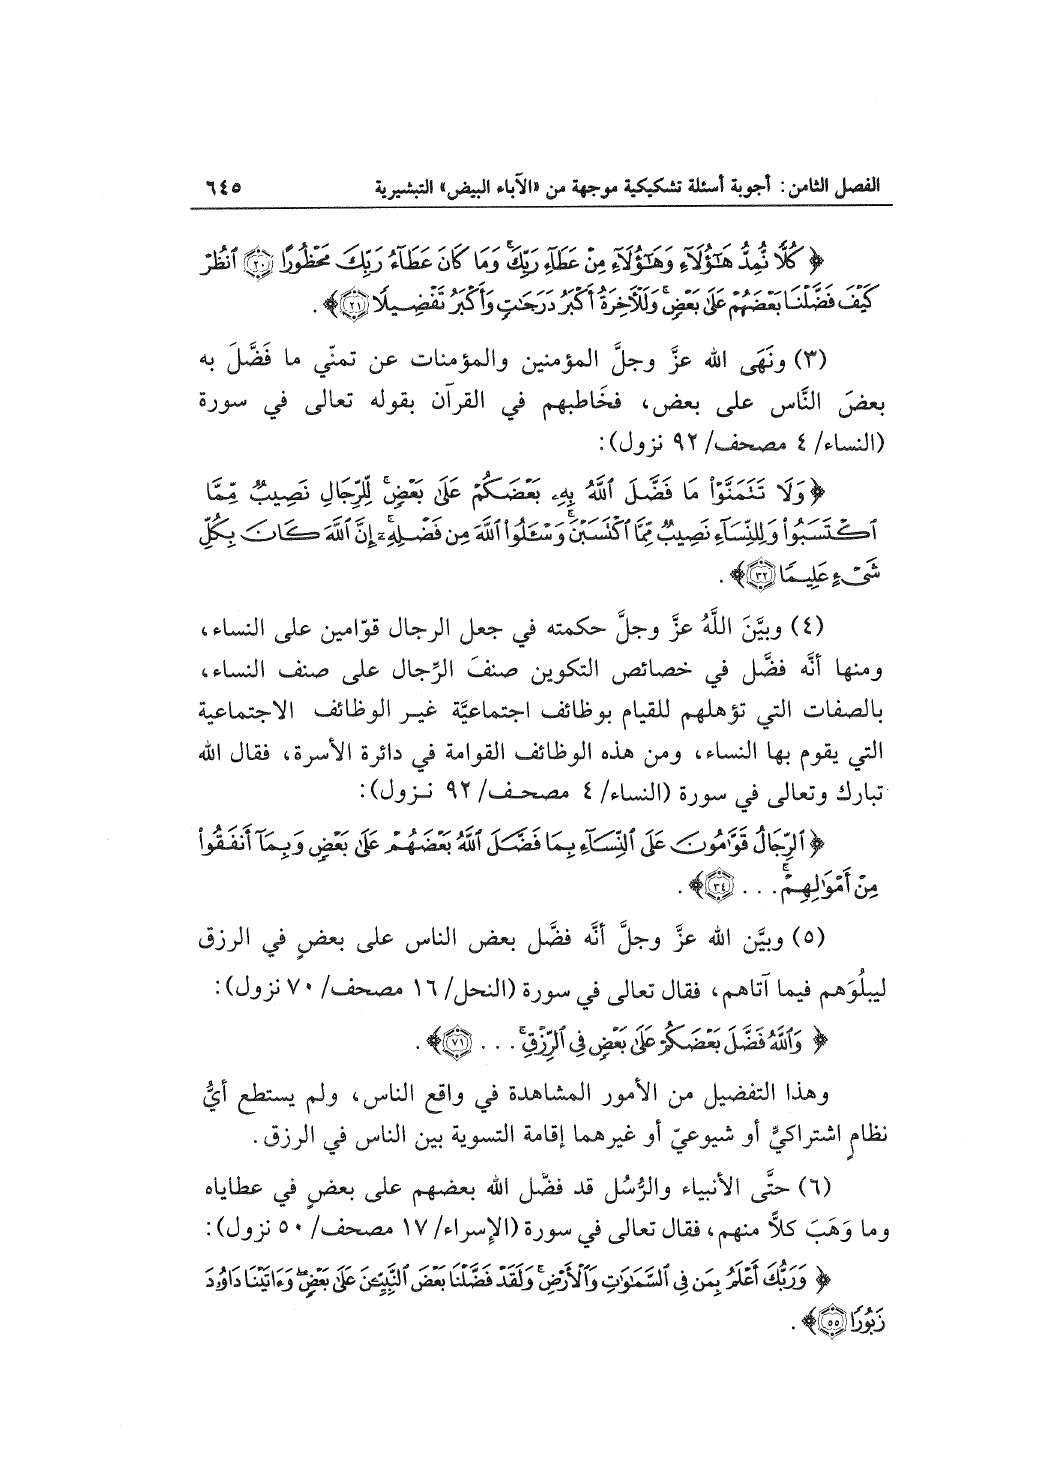 الفصل الثامن: أجوبة أسئلة تشكيكية موجهة من «الآباء البيض» التبشيرية ٦٤٥
﴿كُلًّا نُّمِدُّ هَٰٓؤُلَآءِ وَهَٰٓؤُلَآءِ مِنْ عَطَآءِ رَبِّكَۚ وَمَا كَانَ عَطَآءُ رَبِّكَ مَحْظُورًا ﴿٢٠﴾ ٱنظُرْ
كَيْفَ فَضَّلْنَا بَعْضَهُمْ عَلَىٰ بَعْضٍۚ وَلَلْءَاخِرَةُ أَكْبَرُ دَرَجَٰتٍ وَأَكْبَرُ تَفْضِيلًا ﴿٢١﴾﴾.
(٣) ونَهَى الله عزَّ وجلَّ المؤمنين والمؤمنات عن تمنّي ما فَضَّلَ به
بعضَ النَّاس على بعض، فخَاطبهم في القرآن بقوله تعالى في سورة
(النساء/ ٤ مصحف/ ٩٢ نزول):
﴿وَلَا تَتَمَنَّوْا۟ مَا فَضَّلَ ٱللَّهُ بِهِۦ بَعْضَكُمْ عَلَىٰ بَعْضٍۚ لِّلرِّجَالِ نَصِيبٌ مِّمَّا
ٱكْتَسَبُوا۟ وَلِلنِّسَآءِ نَصِيبٌ مِّمَّا ٱكْتَسَبْنَۚ وَسْـَٔلُوا۟ ٱللَّهَ مِن فَضْلِهِۦٓۚ إِنَّ ٱللَّهَ كَانَ بِكُلِّ
شَىْءٍ عَلِيمًا ﴿٣٢﴾﴾.
(٤) وبيَّنَ اللَّهُ عزَّ وجلَّ حكمته في جعل الرجال قوّامين على النساء،
ومنها أنَّه فضَّل في خصائص التكوين صنفَ الرِّجال على صنف النساء،
بالصفات التي تؤهلهم للقيام بوظائف اجتماعيَّة غير الوظائف الاجتماعية
التي يقوم بها النساء، ومن هذه الوظائف القوامة في دائرة الأسرة، فقال الله
تبارك وتعالى في سورة (النساء/ ٤ مصحف/ ٩٢ نزول):
﴿ٱلرِّجَالُ قَوَّٰمُونَ عَلَى ٱلنِّسَآءِ بِمَا فَضَّلَ ٱللَّهُ بَعْضَهُمْ عَلَىٰ بَعْضٍ وَبِمَآ أَنفَقُوا۟
مِنْ أَمْوَٰلِهِمْۚ ... ﴿٣٤﴾﴾.
(٥) وبيَّن الله عزَّ وجلَّ أنَّه فضَّل بعض الناس على بعضٍ في الرزق
ليبلُوَهم فيما آتاهم، فقال تعالى في سورة (النحل/ ١٦ مصحف/ ٧٠ نزول):
﴿وَٱللَّهُ فَضَّلَ بَعْضَكُمْ عَلَىٰ بَعْضٍ فِى ٱلرِّزْقِۚ ... ﴿٧١﴾﴾.
وهذا التفضيل من الأمور المشاهدة في واقع الناس، ولم يستطع أيُّ
نظامٍ اشتراكيٍّ أو شيوعيّ أو غيرهما إقامة التسوية بين الناس في الرزق.
(٦) حتَّى الأنبياء والرُّسُل قد فضَّل الله بعضهم على بعضٍ في عطاياه
وما وَهَبَ كلاًّ منهم، فقال تعالى في سورة (الإسراء/ ١٧ مصحف/ ٥٠ نزول):
﴿وَرَبُّكَ أَعْلَمُ بِمَن فِى ٱلسَّمَٰوَٰتِ وَٱلْأَرْضِۗ وَلَقَدْ فَضَّلْنَا بَعْضَ ٱلنَّبِيِّـۧنَ عَلَىٰ بَعْضٍۖ وَءَاتَيْنَا دَاوُۥدَ
زَبُورًا ﴿٥٥﴾﴾.